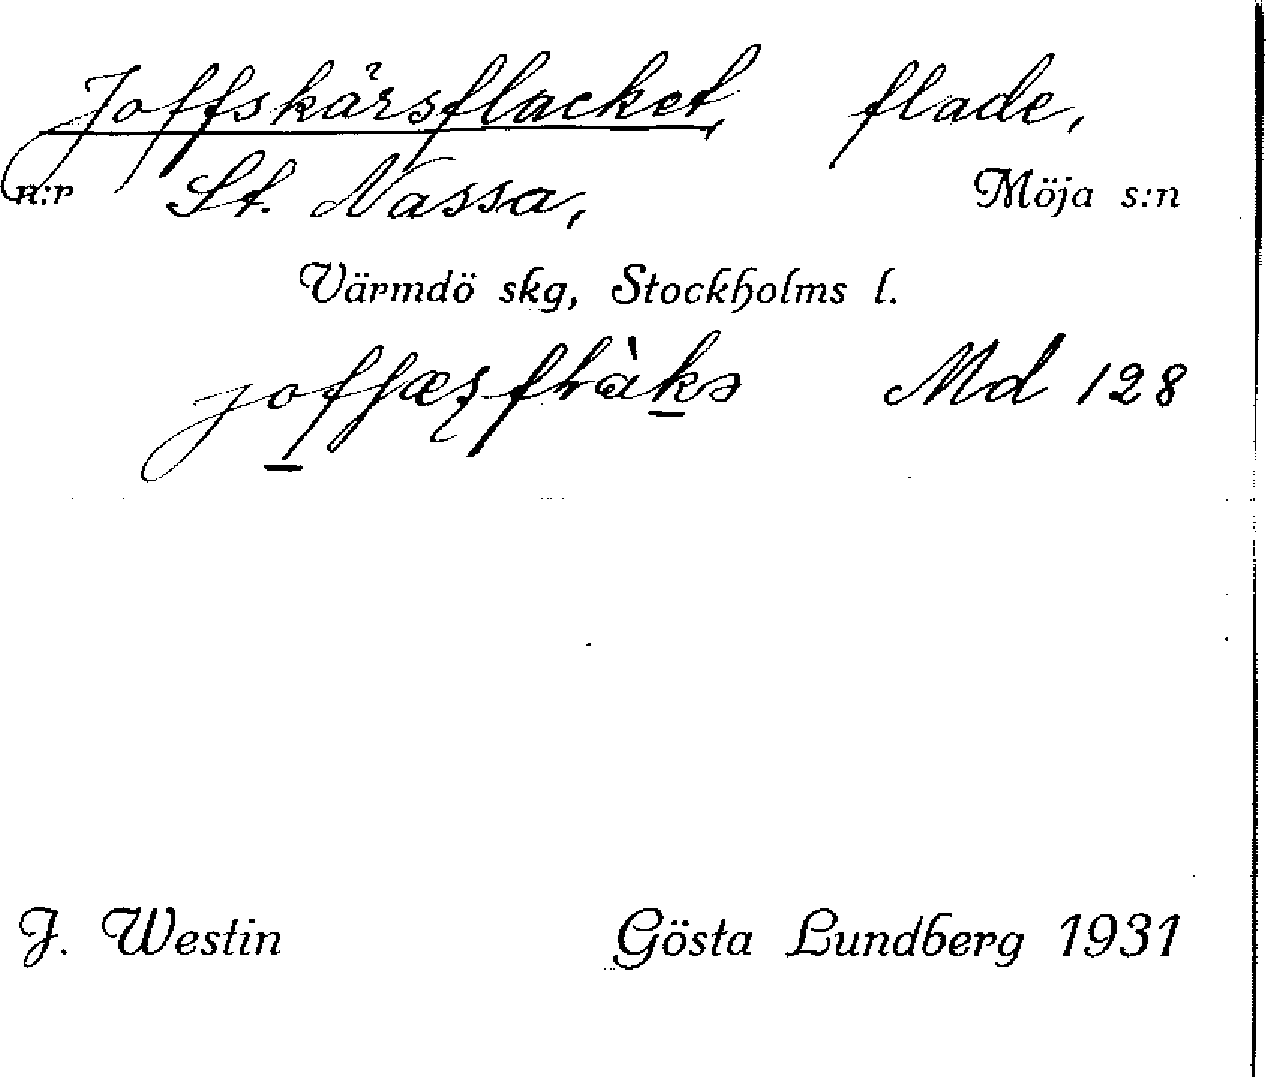 Joffskärsflacket, flade,
n:r St. Nassa, Möja s:n
Värmdö skg, Stockholms l.
Md 128
J. Westin Gösta Lundberg 1931